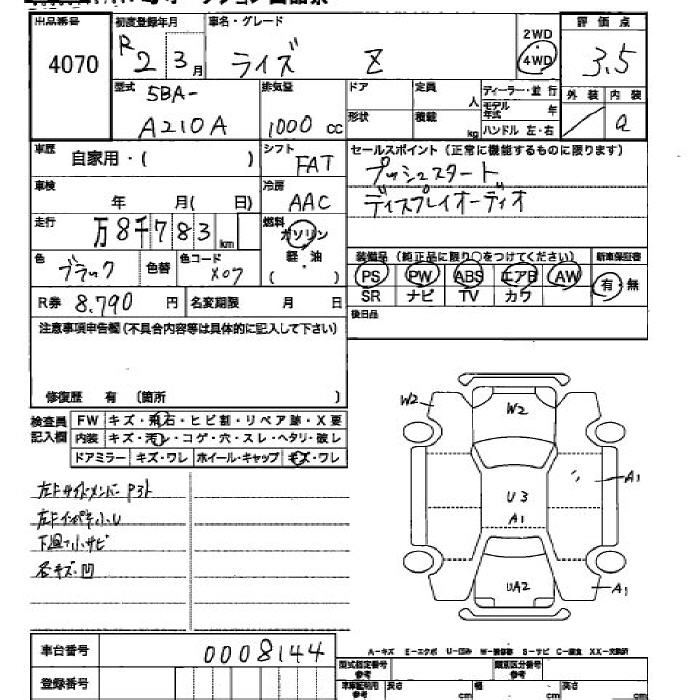 出品番号
4070
初度登録年月
R2 3月
車名・グレード
ライズ Z
2WD
・
4WD
評価点
3.5
型式
5BA-
A210A
排気量
1000 cc
ドア
形状
定員
人
積載
kg
ディーラー・並行
モデル年式 年
ハンドル 左・右
外装 内装
a
車歴
自家用・( )
シフト
FAT
セールスポイント (正常に機能するものに限ります)
プッシュスタート
ディスプレイオーディオ
車検
年 月( 日)
冷房
AAC
走行
万8千783 km
燃料
ガソリン
軽・油
( )
色
ブラック
色替
色コード
X07
装備品 (純正品に限り○をつけてください)
新車保証書
PS PW ABS エアB AW
有・無
SR ナビ TV カワ
R券 8,790 円
名変期限 月 日
後日品
注意事項申告欄(不具合内容等は具体的に記入して下さい)
修復歴 有 (箇所 )
検査員
記入欄
FW キズ・飛石・ヒビ割・リペア跡・X要
内装 キズ・汚レ・コゲ・穴・スレ・ヘタリ・破レ
ドアミラー キズ・ワレ ホイール・キャップ キズ・ワレ
左Fサイドメンバー
下廻り小サビ
各キズ・凹
W2
W2
A1
U3
A1
UA2
A1
車台番号
0008144
登録番号
A-キズ E-エクボ U-凹み W-補修跡 S-サビ C-腐食 XX-交換済
型式指定番号
参考
類別区分番号
参考
長さ cm
幅 cm
高さ cm